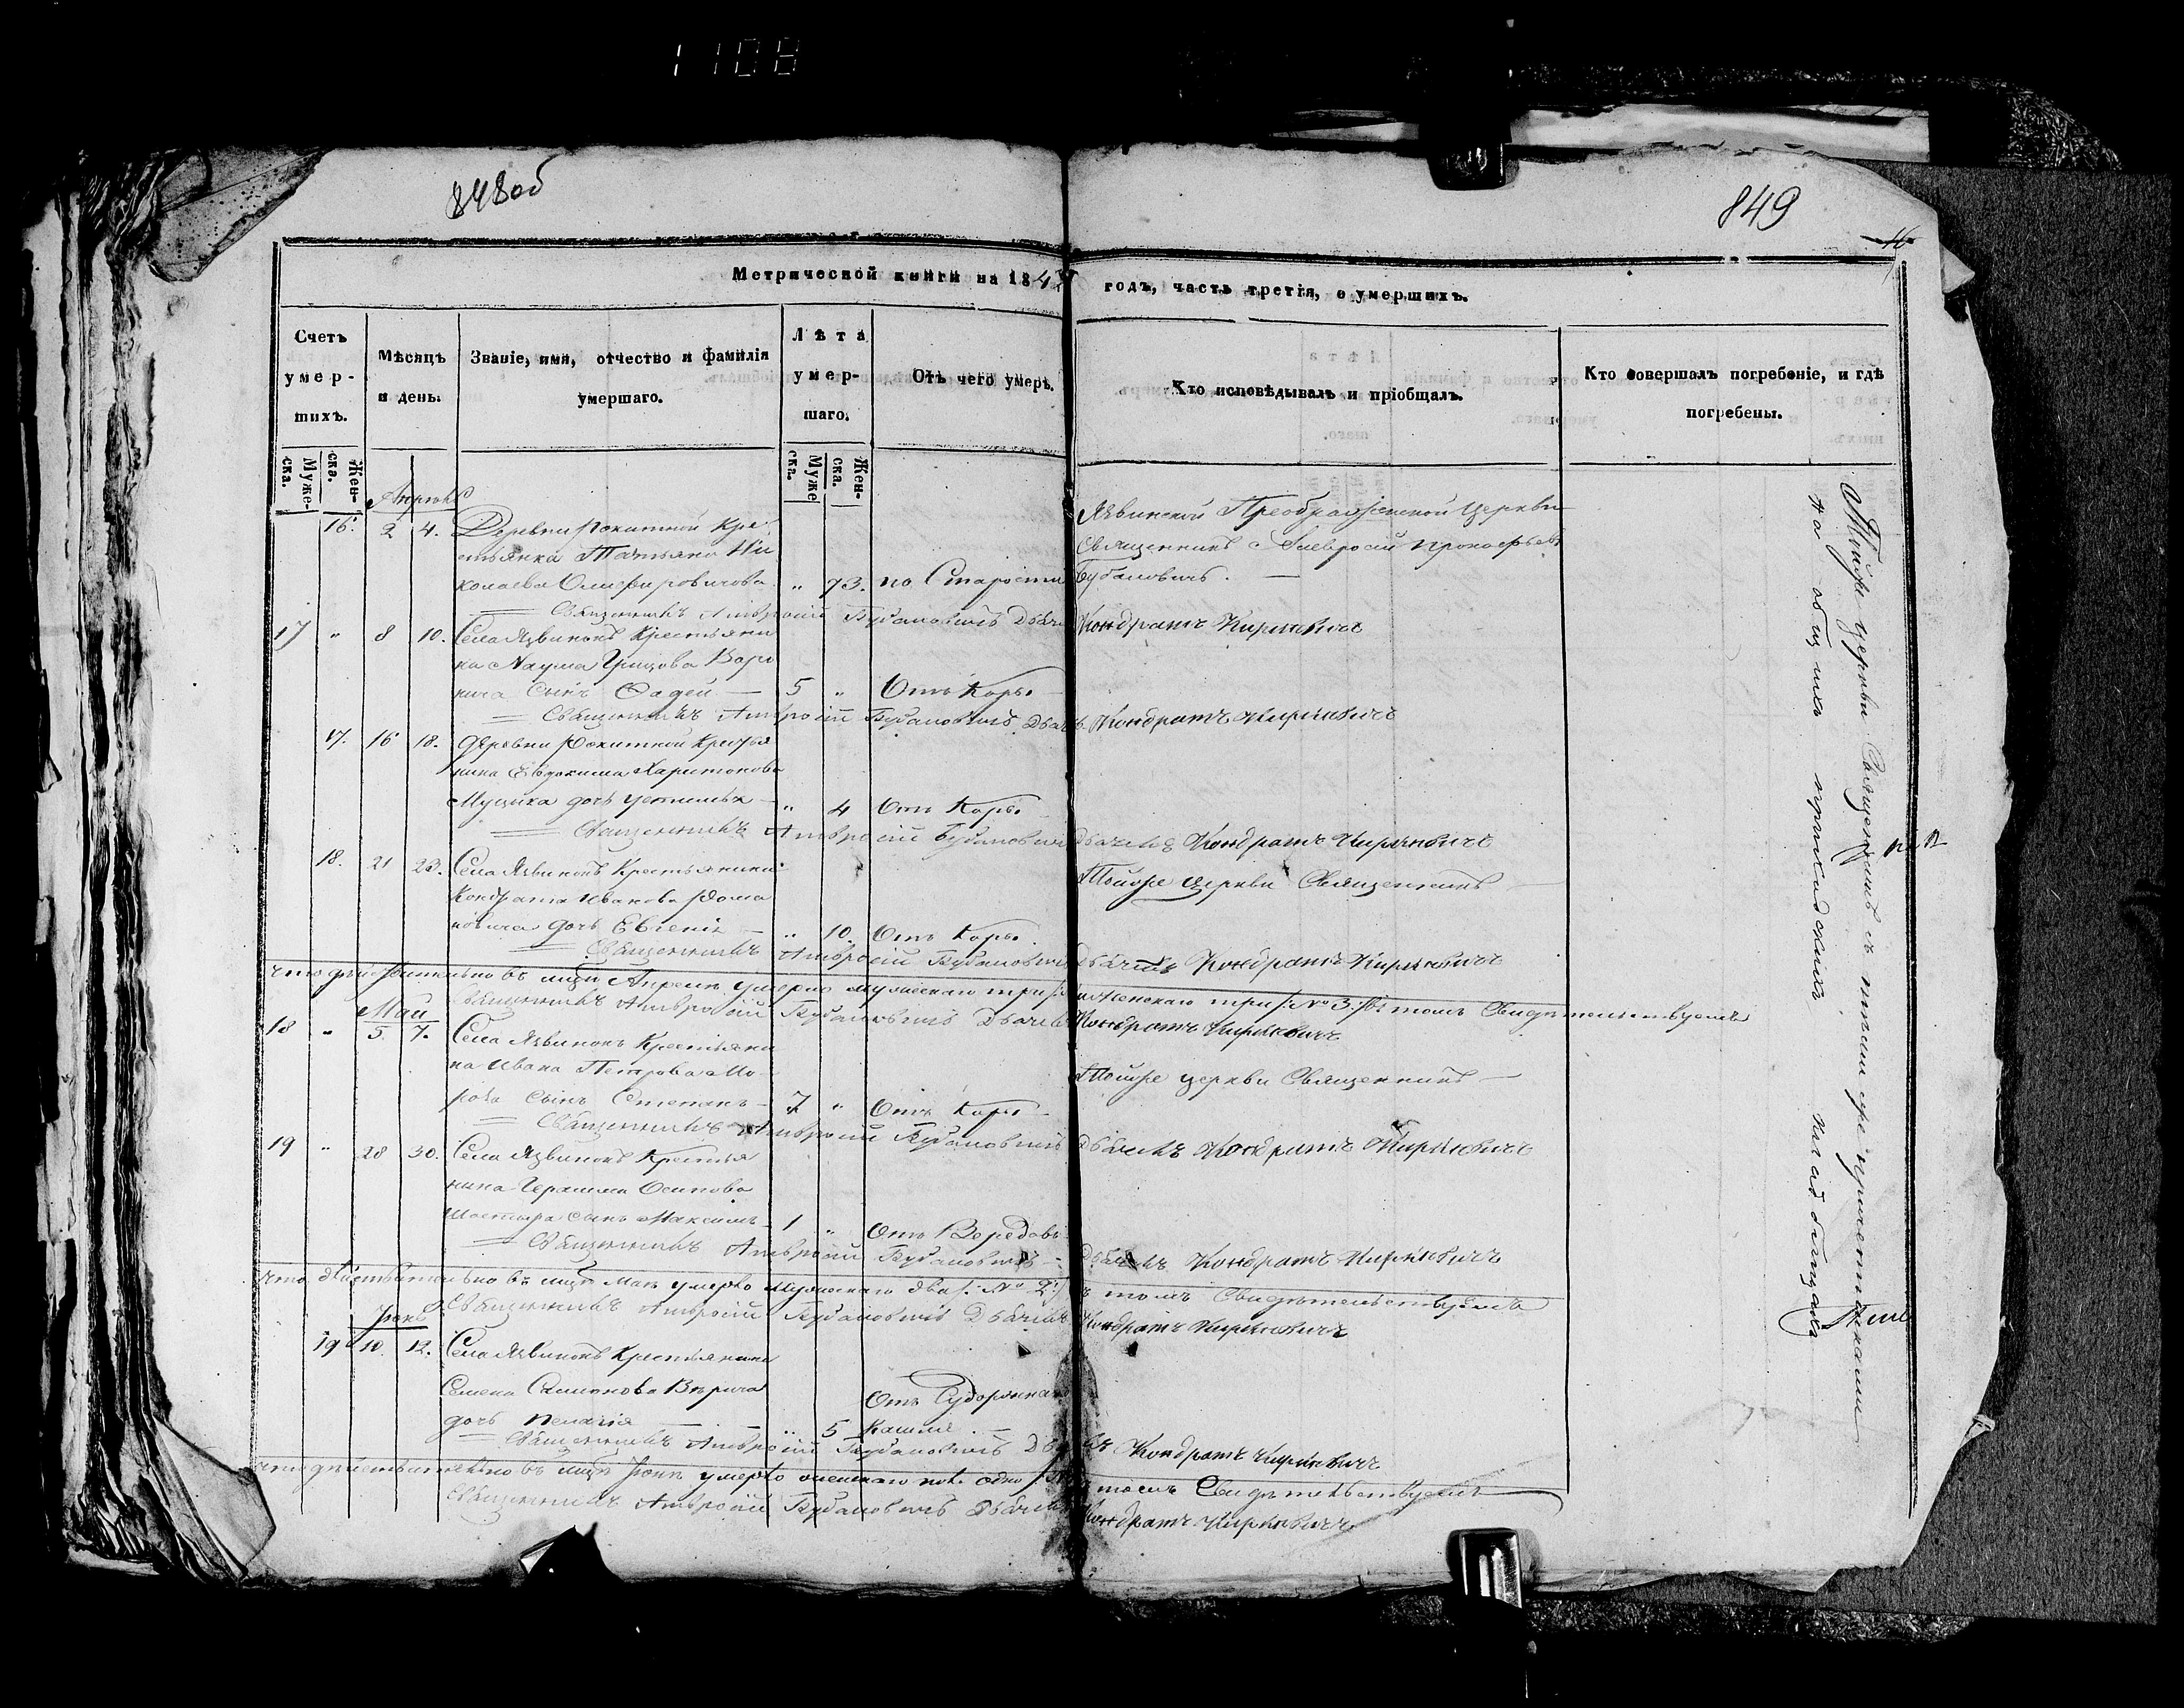 1108
848об
849
16
Метрической книги на 184 годъ, часть третія, о умершихъ.
Счетъ умер-тихъ.
Мѣсяцъ и день.
Званіе, имя, отчество и фамилія умершаго.
Лѣта умер-шаго.
Отъ чего умеръ.
Кто исповѣдывалъ и пріобщалъ.
Кто совершалъ погребеніе, и гдѣ погребены.
Муже-ска.
Жен-ска.
Муже ска.
Жен-ска.
Апрель
16. 2 4. Деревни Рокитной Кре
стьянка Татьяна Ни
колаева Олиферовичова " 73. по Старости
Язвинской Преображенской Церкви
Священникъ Амвросій Прокофьевъ
Бубановичъ. —
Священникъ Амвросій Бубановичъ Дьячекъ Кондратъ Кириневичъ
17 " 8 10. Села Язвинокъ Крестьяни
на Наума Грицова Воро
нича Сынъ Фадей — 5 " Отъ Кори
Священникъ Амвросій Бубановичъ Дьячекъ Кондратъ Кириневичъ
17. 16 18. Деревни Рокитной Крестья
нина Евдокима Харитонова
Мущика дочь Устинья — " 4 Отъ Кори
Священникъ Амвросій Бубановичъ Дьячекъ Кондратъ Кириневичъ
18. 21 23. Села Язвинокъ Крестьянина
Кондрата Иванова Рома
новича дочь Евгенія — " 10. Отъ Кори
Тойже Церкви Священникъ —
Священникъ Амвросій Бубановичъ Дьячекъ Кондратъ Кириневичъ
что дѣйствительно въ мцѣ Апреле умерло мужескаго три женскаго три /: № 3 :/ въ томъ Свидѣтельствуемъ
Священникъ Амвросій Бубановичъ Дьячекъ Кондратъ Кириневичъ
Май
18 " 5. 7. Села Язвинокъ Крестьяни
на Ивана Петрова Мо
роза Сынъ Степанъ — 7 " Отъ Кори —
Тойже церкви Священникъ —
Священникъ Амвросій Бубановичъ Дьячекъ Кондратъ Кириневичъ
19 " 28 30. Села Язвинокъ Крестья
нина Герасима Осипова
Шостыра сынъ Максимъ — 1 " Отъ Вередовъ
Священникъ Амвросій Бубановичъ — Дьячекъ Кондратъ Кириневичъ
что дѣйствительно въ мцѣ Маѣ умерло мужескаго два /: № 2 :/ въ томъ Свидѣтельствуемъ
Священникъ Амвросій Бубановичъ Дьячекъ Кондратъ Кириневичъ
Іюнь
19 10. 12. Села Язвинокъ Крестьянина
Семена Самонова Вѣрича
дочь Пелагія — " 5 Отъ Судорожнаго
Кашля. —
Священникъ Амвросій Бубановичъ Дьячекъ Кондратъ Кириневичъ
что дѣйствительно въ мцѣ Іюнѣ умерло женскаго пола одно въ томъ Свидѣтельствуемъ
Священникъ Амвросій Бубановичъ Дьячекъ Кондратъ Кириневичъ
Тойже церкви Священникъ съ тѣми же причетниками
на общихъ приходскихъ кладбищахъ